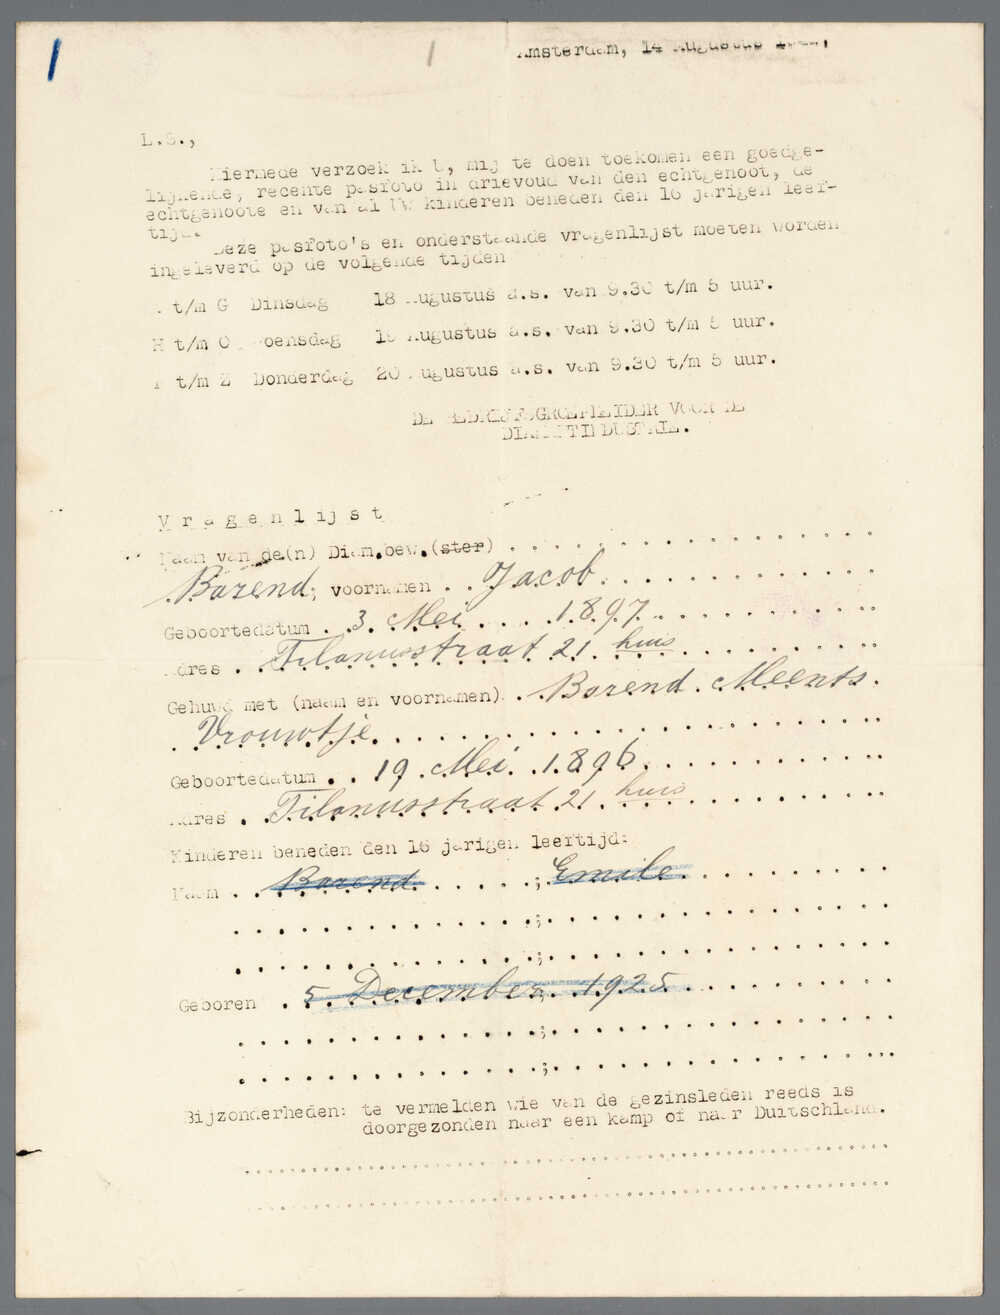 Amsterdam, 14 Augustus
L.S.,
Hiermede verzoek ik U, mij te doen toekomen een goedge-
lijkende, recente pasfoto in drievoud van den echtgenoot, de
echtgenoote en van al Uw kinderen beneden den 16 jarigen leef-
tijd.
Deze pasfoto's en onderstaande vragenlijst moeten worden
ingeleverd op de volgende tijden
t/m G Dinsdag 18 Augustus a.s. van 9.30 t/m 5 uur.
H t/m O Woensdag 19 Augustus a.s. van 9.30 t/m 5 uur.
P t/m Z Donderdag 20 Augustus a.s. van 9.30 t/m 5 uur.
DE BEDRIJFSGROEPLEIDER VOOR DE
DIAMANTINDUSTRIE.
Vragenlijst
Naam van de(n) Diam.bew.(ster) . . . . . . . . . . . . . . . . .
Barend; voornamen . . Jacob. . . . . . . . . . . . .
Geboortedatum . 3. Mei . . . . 1897. . . . . . . . . . .
Adres . . Tilanusstraat 21 huis . . . . . . . . .
Gehuwd met (naam en voornamen). . Barend. Meents.
. Vrouwtje. . . . . . . . . . . . . . . . . . . . . . . .
Geboortedatum . . 19 . Mei . 1896. . . . . . . . . . . .
Adres . Tilanusstraat 21. huis . . . . . . . . . .
Kinderen beneden den 16 jarigen leeftijd:
Naam . . Barend. . . . . . . ; Emile. . . . . . . . . . .
. . . . . . . . . . . . . . . . ; . . . . . . . . . . . . . . .
. . . . . . . . . . . . . . . . ; . . . . . . . . . . . . . . .
Geboren . 5 December. 1925 . . . . . . . . . . .
. . . . . . . . . . . . . . . . ; . . . . . . . . . . . . . . .
. . . . . . . . . . . . . . . . ; . . . . . . . . . . . . . . .
Bijzonderheden: te vermelden wie van de gezinsleden reeds is
doorgezonden naar een kamp of naar Duitschland.